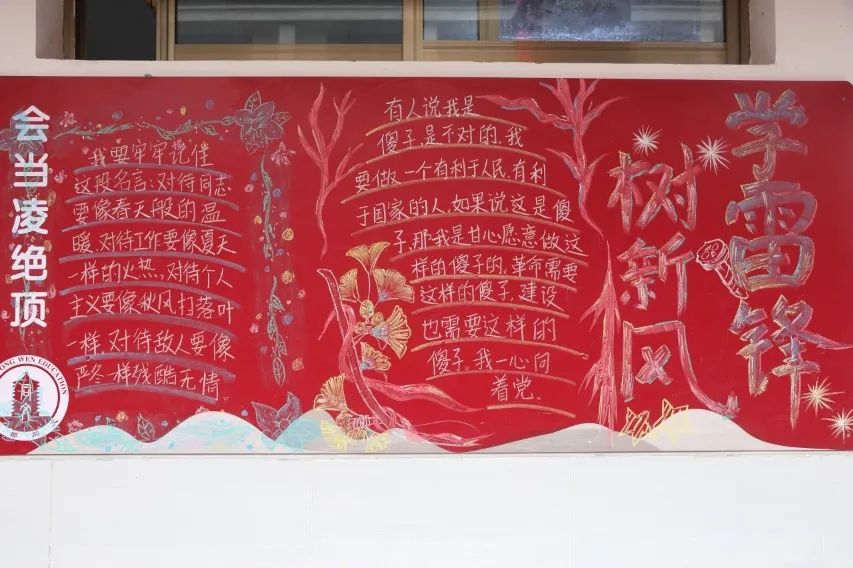 会当凌绝顶
我要牢牢记住
这段名言:对待同志
要像春天般的温
暖,对待工作要像夏天
一样的火热,对待个人
主义要像秋风扫落叶
一样,对待敌人要像
严冬一样残酷无情
有人说我是
傻子,是不对的.我
要做一个有利于人民,有利
于国家的人.如果说这是傻
子,那我是甘心愿意做这
样的傻子的,革命需要
这样的傻子,建设
也需要这样的
傻子。我一心向
着党。
学雷锋
树新风
ONG WEN EDUCATION